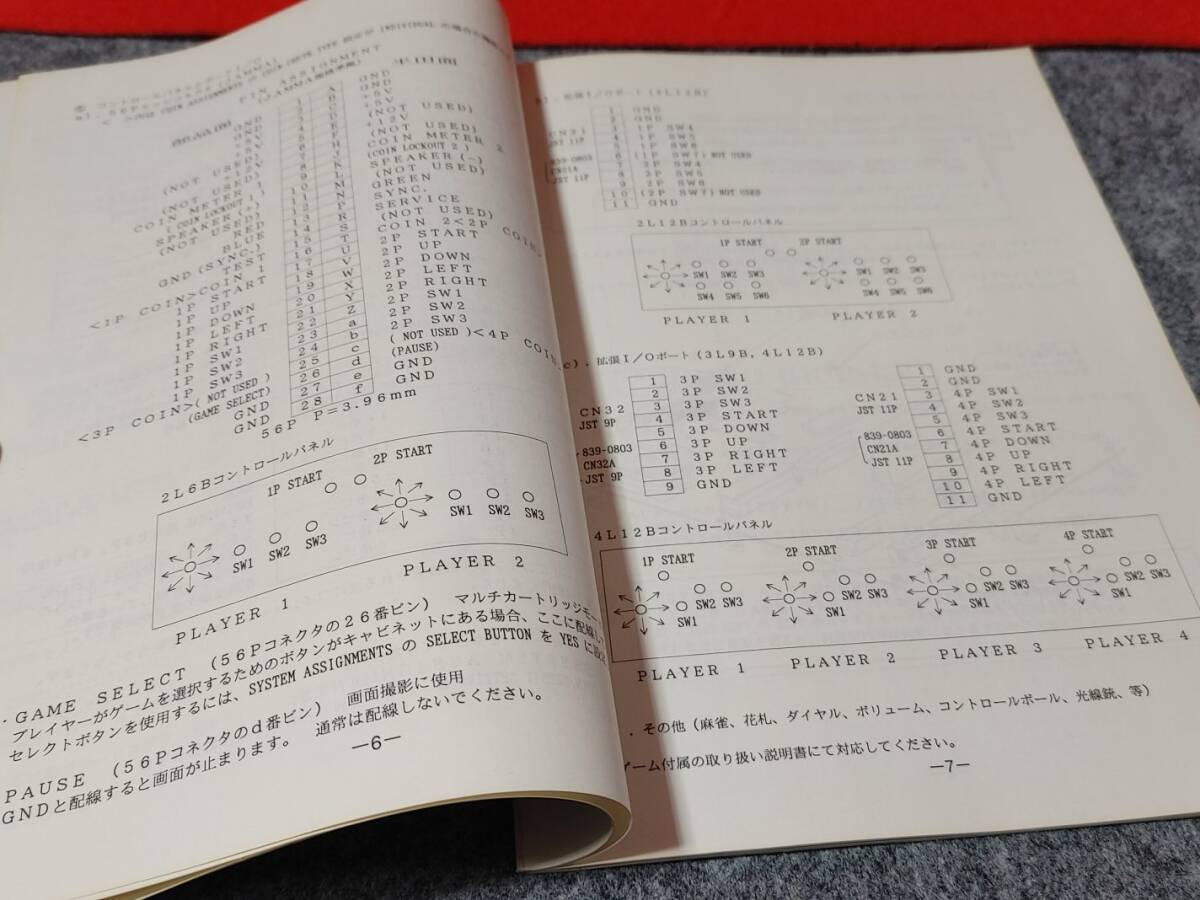 56P
PIN ASSIGNMENT
半田面
部品面
GND 1 A GND
GND 2 B GND
+5V 3 C +5V
+5V 4 D +5V
(NOT USED) 5 E (NOT USED)
+12V 6 F +12V
(NOT USED) 7 H (NOT USED)
COIN METER 1 8 J COIN METER 2
(COIN LOCKOUT 1) 9 K (COIN LOCKOUT 2)
SPEAKER(+) 10 L SPEAKER(-)
(NOT USED) 11 M (NOT USED)
12 N GREEN
BLUE 13 P SYNC.
GND(SYNC.) 14 R SERVICE
TEST 15 S (NOT USED)
<1P COIN>COIN 1 16 T COIN 2<2P COIN>
1P START 17 U 2P START
1P UP 18 V 2P UP
1P DOWN 19 W 2P DOWN
1P LEFT 20 X 2P LEFT
1P RIGHT 21 Y 2P RIGHT
1P SW1 22 Z 2P SW1
1P SW2 23 a 2P SW2
1P SW3 24 b 2P SW3
<3P COIN>(NOT USED) 25 c (NOT USED)<4P COIN
(GAME SELECT) 26 d (PAUSE)
GND 27 e GND
GND 28 f GND
56P P=3.96mm
2L6Bコントロールパネル
1P START
2P START
SW1 SW2 SW3
SW1 SW2 SW3
PLAYER 1
PLAYER 2
・GAME SELECT (56Pコネクタの26番ピン) マルチカートリッジモー
プレイヤーがゲームを選択するためのボタンがキャビネットにある場合、ここに配線し
セレクトボタンを使用するには、SYSTEM ASSIGNMENTS の SELECT BUTTON を YES に
PAUSE (56Pコネクタのd番ピン) 画面撮影に使用
GNDと配線すると画面が止まります。 通常は配線しないでください。
—6—
b).拡張I/Oポート(2L12B)
CN21
JST 11P
839-0803
CN21A
JST 11P
1 GND
2 GND
3 1P SW4
4 1P SW5
5 1P SW6
6 (1P SW7) NOT USED
7 2P SW4
8 2P SW5
9 2P SW6
10 (2P SW7) NOT USED
11 GND
2L12Bコントロールパネル
1P START
2P START
SW1 SW2 SW3
SW4 SW5 SW6
SW1 SW2 SW3
SW4 SW5 SW6
PLAYER 1
PLAYER 2
c).拡張I/Oポート(3L9B, 4L12B)
CN32
JST 9P
839-0803
CN32A
JST 9P
1 3P SW1
2 3P SW2
3 3P SW3
4 3P START
5 3P DOWN
6 3P UP
7 3P RIGHT
8 3P LEFT
9 GND
CN21
JST 11P
839-0803
CN21A
JST 11P
1 GND
2 GND
3 4P SW1
4 4P SW2
5 4P SW3
6 4P START
7 4P DOWN
8 4P UP
9 4P RIGHT
10 4P LEFT
11 GND
4L12Bコントロールパネル
1P START
2P START
3P START
4P START
SW2 SW3
SW1
SW2 SW3
SW1
SW2 SW3
SW1
SW2 SW3
SW1
PLAYER 1
PLAYER 2
PLAYER 3
PLAYER 4
.その他(麻雀、花札、ダイヤル、ボリューム、コントロールボール、光線銃、等)
ゲーム付属の取り扱い説明書にて対応してください。
—7—